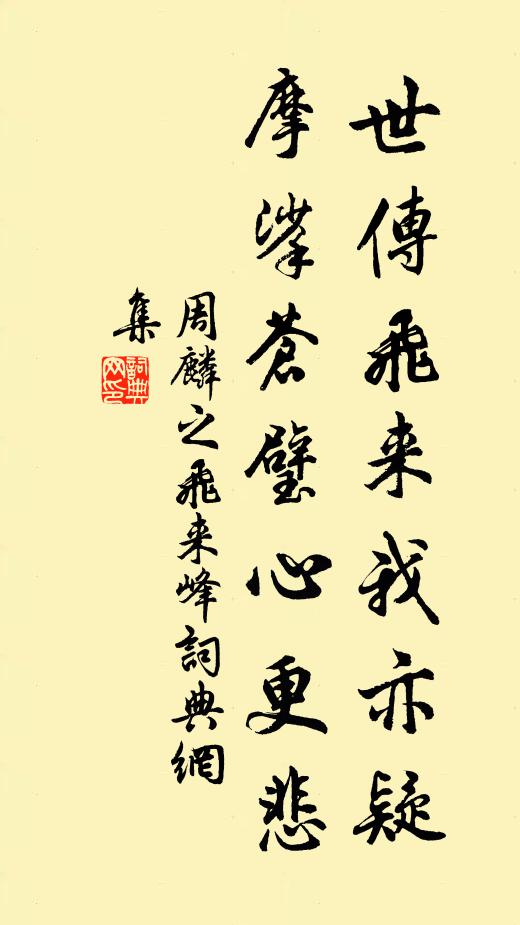 世傳飛来我亦疑
摩挲蒼璧心更悲
周麟之飛来峰詞典網
集
詞典网印